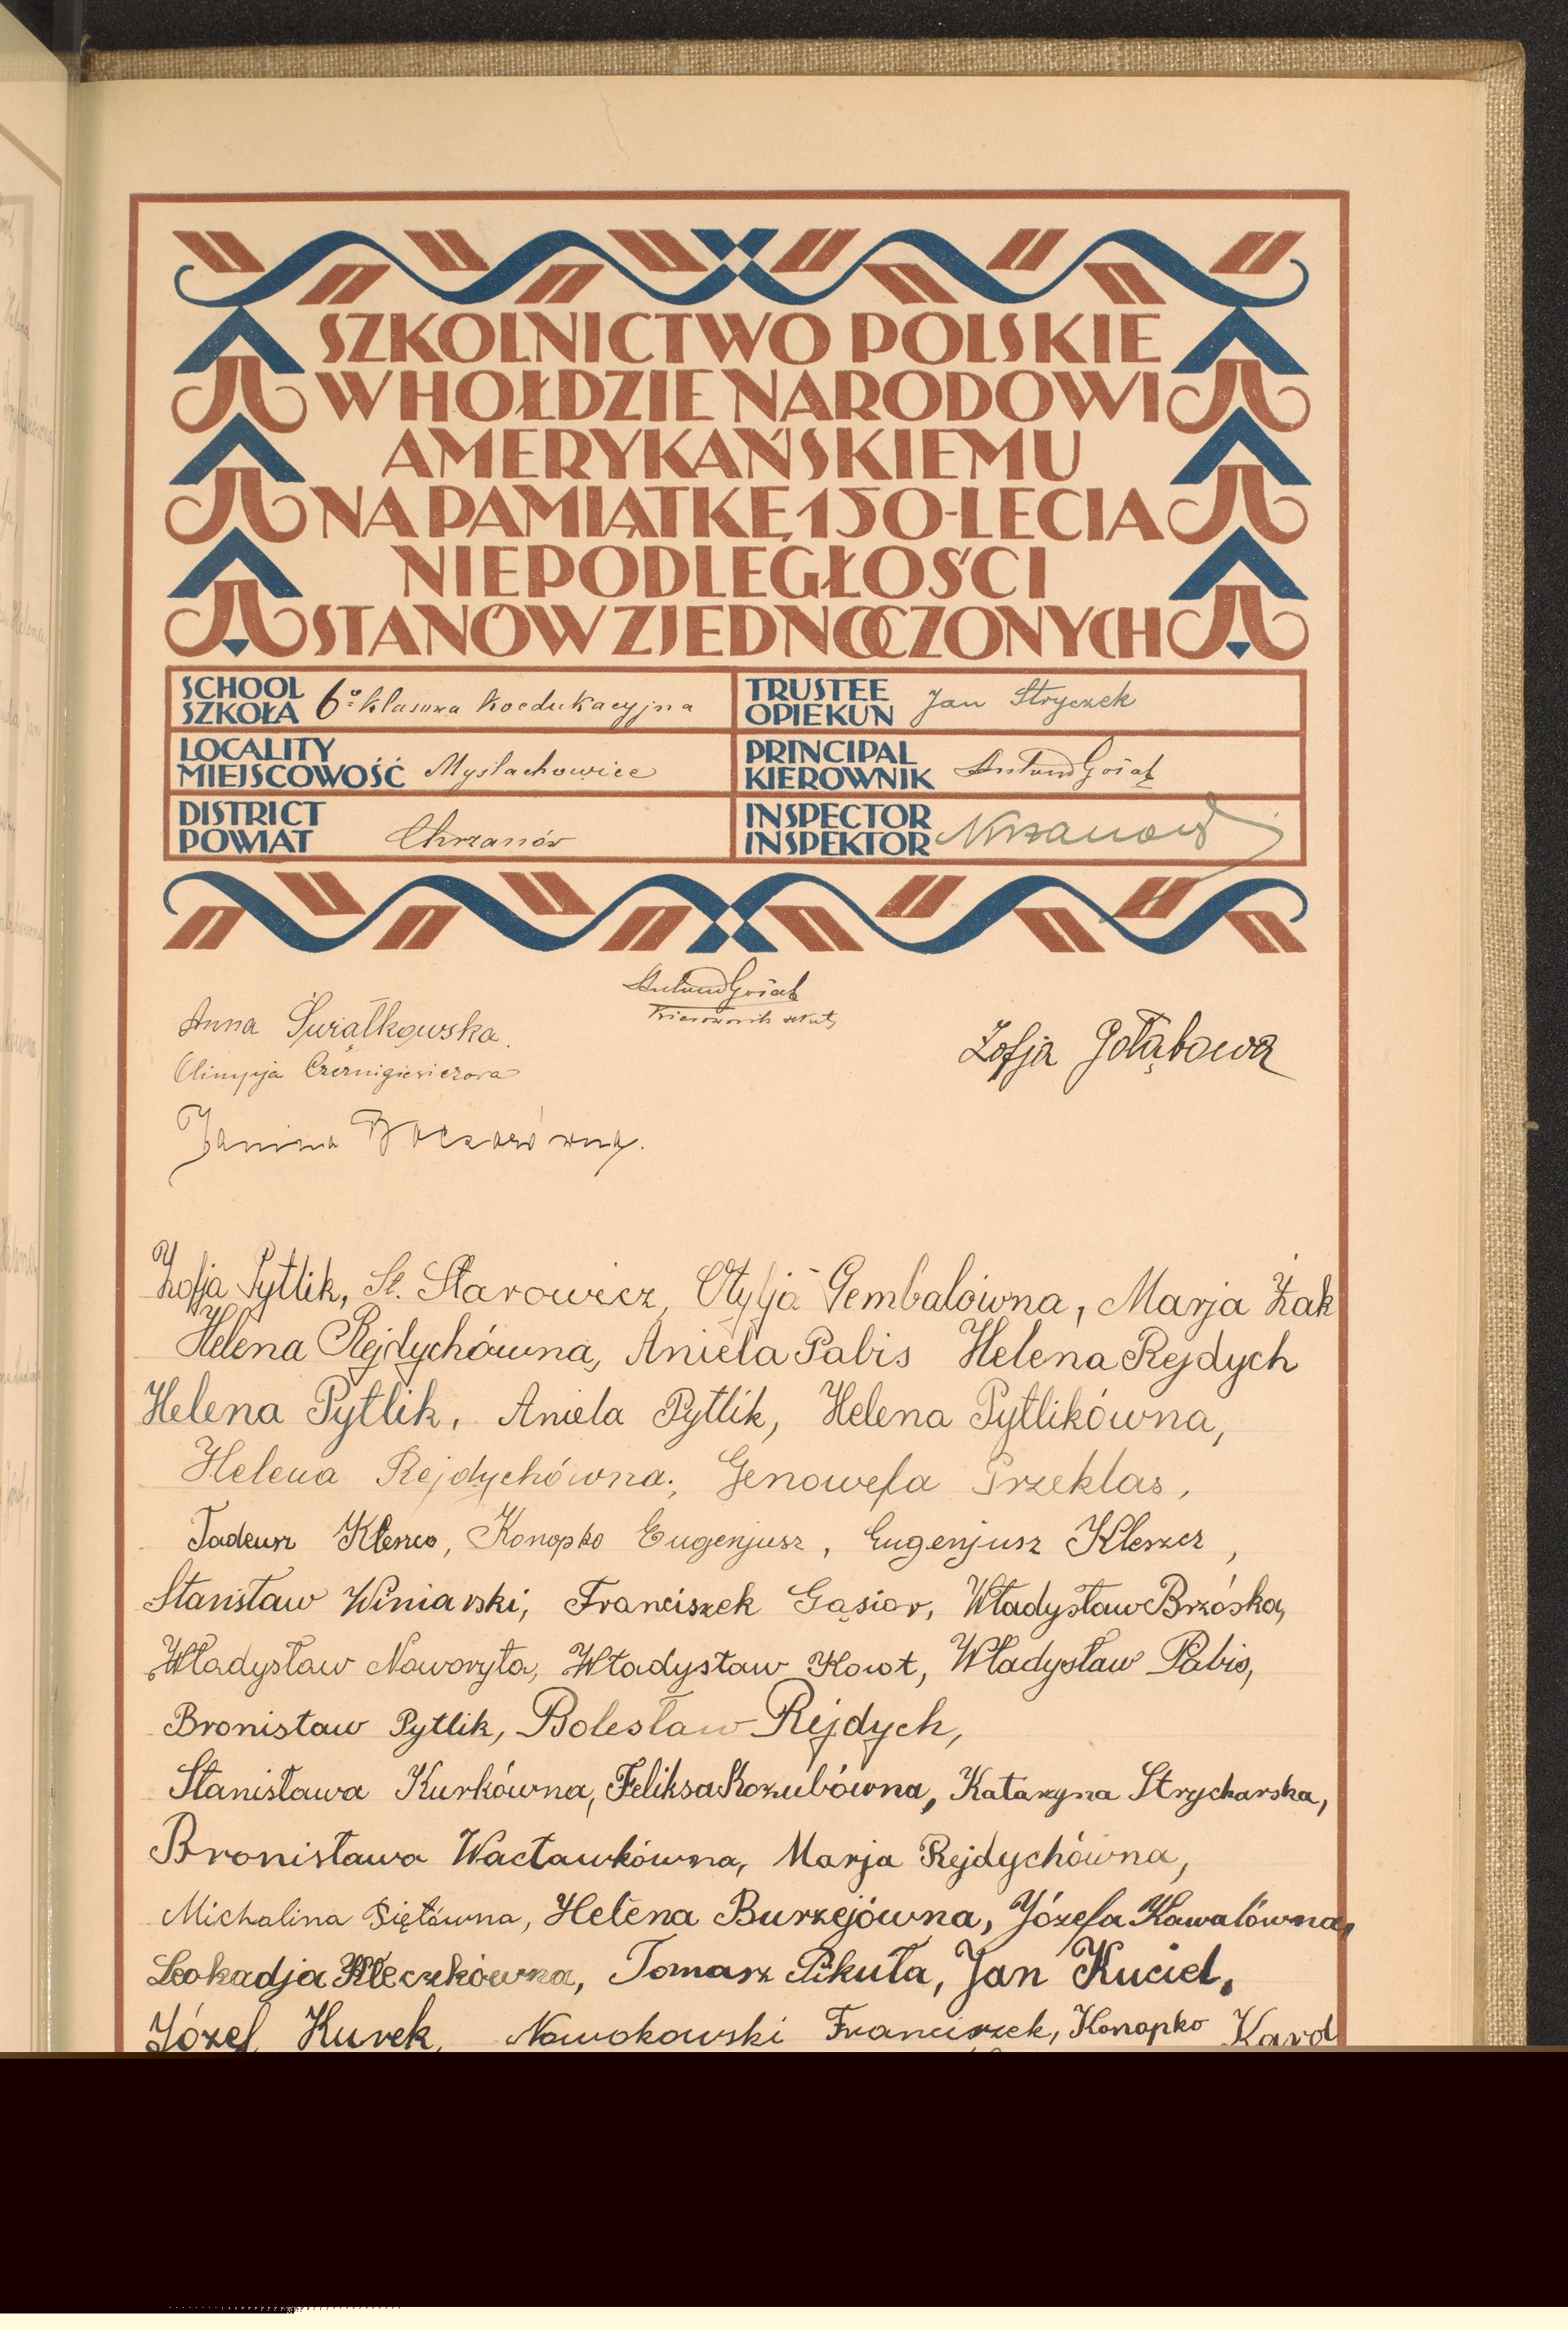 SZKOLNICTWO POLSKIE
W HOŁDZIE NARODOWI
AMERYKAŃSKIEMU
NA PAMIĄTKĘ 150-LECIA
NIEPODLEGŁOŚCI
STANÓW ZJEDNOCZONYCH
SCHOOL
SZKOŁA 6º klasowa koedukacyjna
TRUSTEE
OPIEKUN Jan Stryczek
LOCALITY
MIEJSCOWOŚĆ Myślachowice
PRINCIPAL
KIEROWNIK
DISTRICT
POWIAT Chrzanów
INSPECTOR
INSPEKTOR
Kierownik szkoły
Anna Świątkowska
Zofja Gołąbowa
Olimpja
Janina
Zofja Pytlik, St. Starowicz, Otylja Gembalówna, Marja Żak
Helena Rejdychówna, Aniela Pabis Helena Rejdych
Helena Pytlik, Aniela Pytlik, Helena Pytlikówna,
Helena Rejdychówna, Genowefa Przeklas,
Tadeusz, Konopko Eugenjusz, Eugenjusz Kleszcz,
Stanisław Winiarski, Franciszek Gąsior, Władysław Brzóska,
Władysław Noworyta, Władysław Kowt, Władysław Pabis,
Bronisław Pytlik, Bolesław Rejdych,
Stanisława Kurkówna, Feliksa Kozubówna, Katarzyna Strycharska,
Bronisława Wacławkówna, Marja Rejdychówna,
Michalina, Helena Burzejówna, Józefa Kowalówna,
Leokadja Kleczkówna, Tomasz Pikuła, Jan Kuciel,
Józef Kurek, Nowokowski Franciszek, Konopko Karol